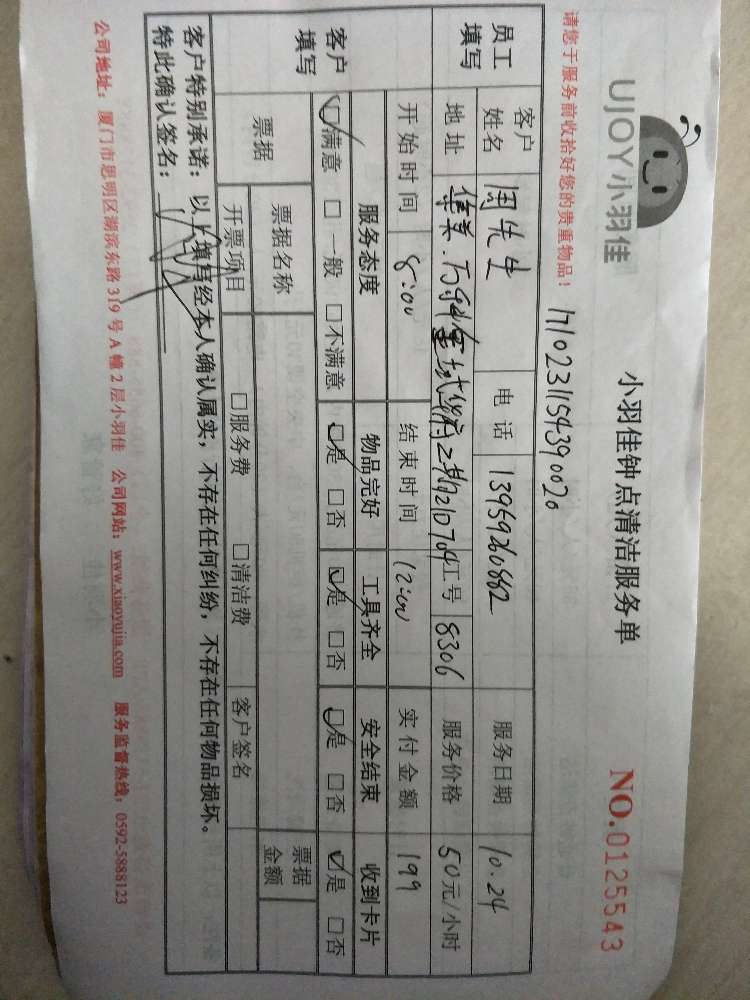 UJOY小羽佳
小羽佳钟点清洁服务单
NO.0125543
请您于服务前收拾好您的贵重物品！
1710231154390020
员工填写
客户姓名 周先生 电话 13959260882 服务日期 10.24
地址 集美.万科金域华府二期9210704 工号 8306 服务价格 50元/小时
开始时间 8:00 结束时间 12:00 实付金额 199
客户填写
服务态度 物品完好 工具齐全 安全结束 收到卡片
☑满意 □一般 □不满意 ☑是 □否 ☑是 □否 ☑是 □否 ☑是 □否
票据 票据名称 票据金额
开票项目 □服务费 □清洁费 客户签名
客户特别承诺：以上填写经本人确认属实，不存在任何纠纷，不存在任何物品损坏。
特此确认签名：
公司地址：厦门市思明区湖滨东路319号A幢2层小羽佳 公司网站：www.xiaoyujia.com 服务监督热线：0592-5888123